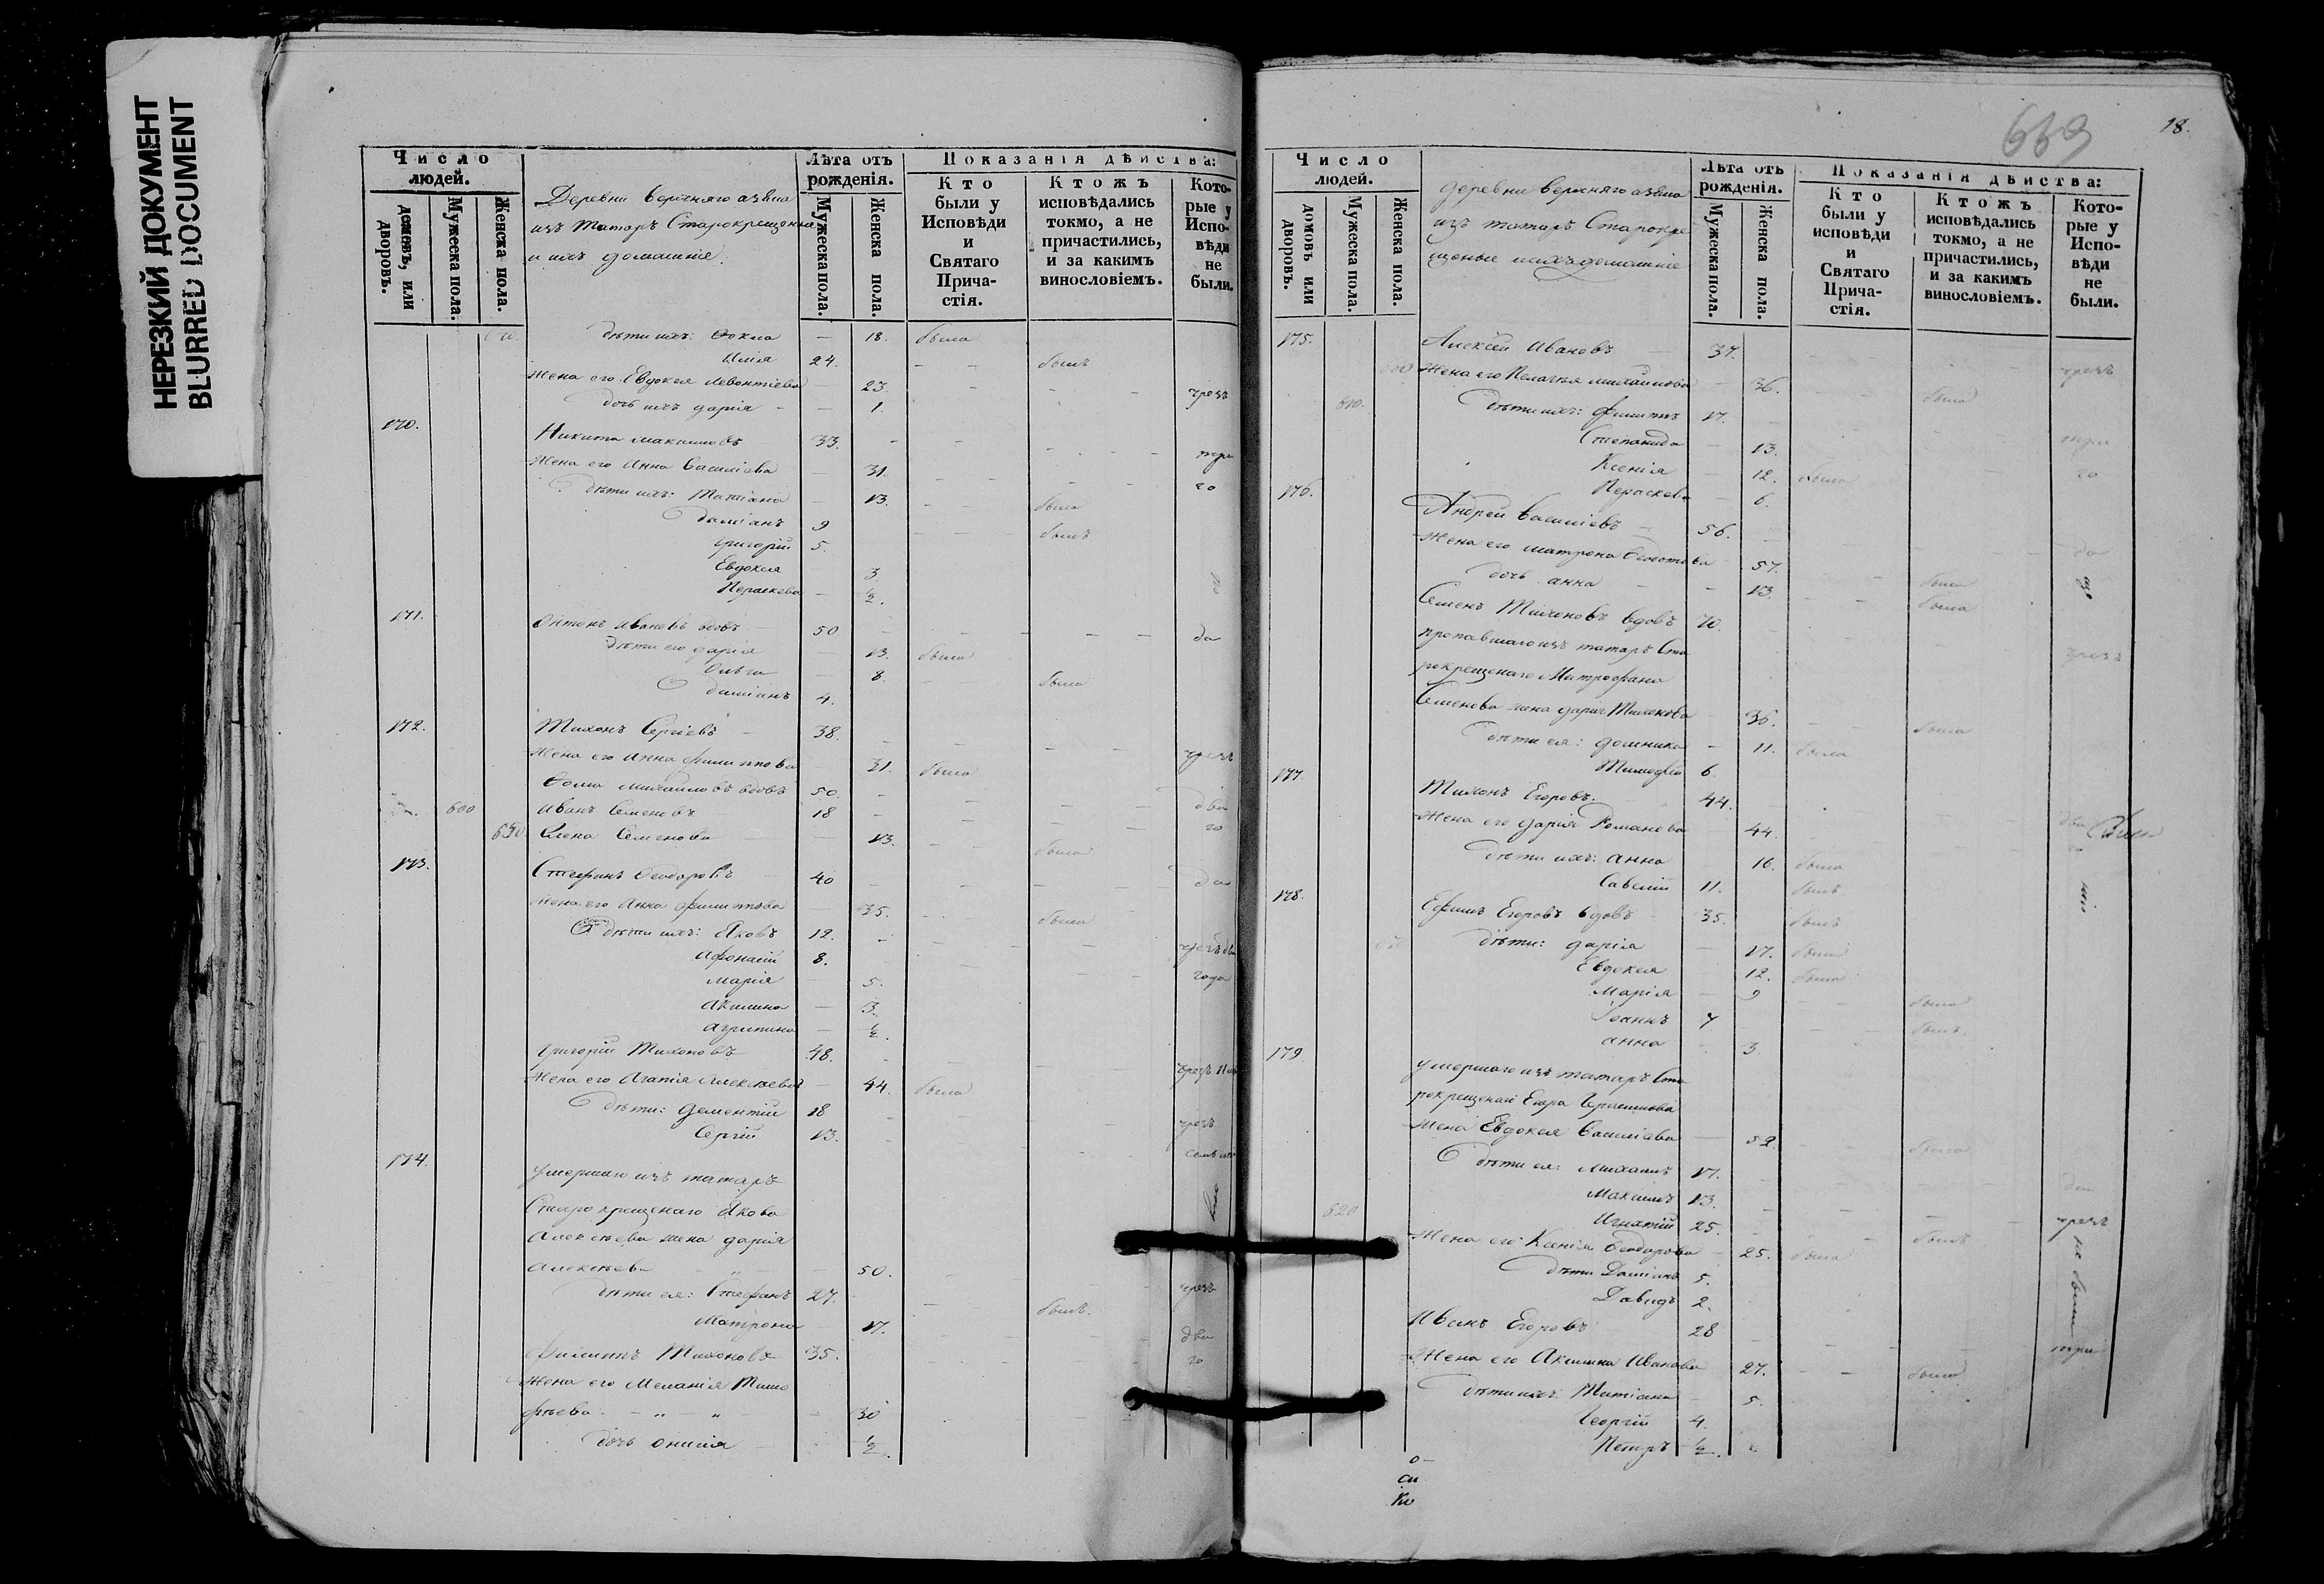 НЕРЕЗКИЙ ДОКУМЕНТ
BLURRED DOCUMENT
Число людей.
домовъ, или дворовъ.
Мужеска пола.
Женска пола.
Деревни верхняго азяка
изъ татаръ Старокрещенные
и ихъ домашніе.
Лѣта отъ рожденія.
Мужеска пола.
Женска пола.
Показанія дѣйства:
Кто были у Исповѣди и Святаго Прича-стія.
Ктожъ исповѣдались токмо, а не причастились, и за какимъ винословіемъ.
Кото-рые у Испо-вѣди не были.
дѣти ихъ: Фокла — 18. была
Илія 24. — — былъ
Жена его Евдокея Левонтіева 23. чрезъ
дочь ихъ дарія — 1.
170. Никита Максимовъ 33. — —
Жена его Анна Василіева — 31. три
дѣти ихъ: Татіана — 13. — — была го
Даміанъ 9 былъ
григорій 5.
Евдокея 3.
Пераскева — ½.
171. Антонъ Ивановъ вдовъ 50 — да
дѣти его дарія — 13. была
Ольга 8. была
даміанъ 4.
172. Тихонъ Сергіевъ — 38.
Жена его Анна филиппова 31. была чрезъ
Фома Михайловъ вдовъ 50.
600 Иванъ Семеновъ 18 два
650 Елена Семенова 13. была го
173. Стефанъ Феодоровъ 40 да
Жена его Анна филиппова 35. была
дѣти ихъ: Яковъ 12.
Афонасій 8. чрезъ два
марія — 5. года
Акилина — 3.
Агрипина — ½.
григорій Тихоновъ 48.
Жена его Агапія Алексѣева — 44. была чрезъ
дѣти: Дементій 18
Сергій 13. чрезъ
174. умершаго изъ татаръ
Старокрещенаго Якова
Алексѣева жена дарія
Алексѣева 50.
дѣти ея: Стефанъ 27. чрезъ
Матрона 17. былъ.
филиппъ Тихоновъ 35. два
Жена его Меланія Тимо го
фѣева — „ „ 30
дочь Онисія ½.
669
18.
Число людей.
домовъ или дворовъ.
Мужеска пола.
Женска пола.
деревни верхняго азяка
изъ татаръ Старокре
щеные и ихъ домашніе
Лѣта отъ рожденія.
Мужеска пола.
Женска пола.
Показанія дѣйства:
Кто были у исповѣди и Святаго Прича-стія.
Ктожъ исповѣдались токмо, а не причастились, и за какимъ винословіемъ.
Кото-рые у Испо-вѣди не были.
175. Алексѣй Ивановъ 37. чрезъ
Жена его Пелагея михайлова 36. была
610. дѣти ихъ: филиппъ 17.
Степанида — 13. три
Ксенія — 12. была го
Пераскева — 6.
176. Андрей Василіевъ — 56.
Жена его матрона Федотова 57. была да
дочь анна — 13. была
Семенъ Тихоновъ вдовъ 70.
пропавшаго изъ татаръ Ста чрезъ
рокрещенаго Митрофана
Семенова жена дарія Тихонова 36. была
дѣти ея: домника — 11. была
Тимофей 6.
177. Тихонъ Егоровъ. 44.
Жена его дарія Романова 44. два
дѣти ихъ: Анна 16. была го
Савелій 11. былъ
178. Ефимъ Егоровъ вдовъ 35. былъ
дѣти: дарія — 17. была
Евдокея 12. была
Марія — 9 была
Іоаннъ 7 былъ.
анна 3.
179. умершаго изъ татаръ Ста
рокрещенаго Егора Герасимова
Жена Евдокея Василіева — 52. была
дѣти ея: Михаилъ 17.
Максимъ 13.
620 Игнатій 25. былъ чрезъ
Жена его: Ксенія Феодорова 25. была
дѣти Даміанъ 5.
Давидъ 2.
не были
Иванъ Егоровъ 28
Жена его Акилина Иванова 27. была три
дѣти ихъ: Татіана 5.
Георгій 4.
Петръ ½.